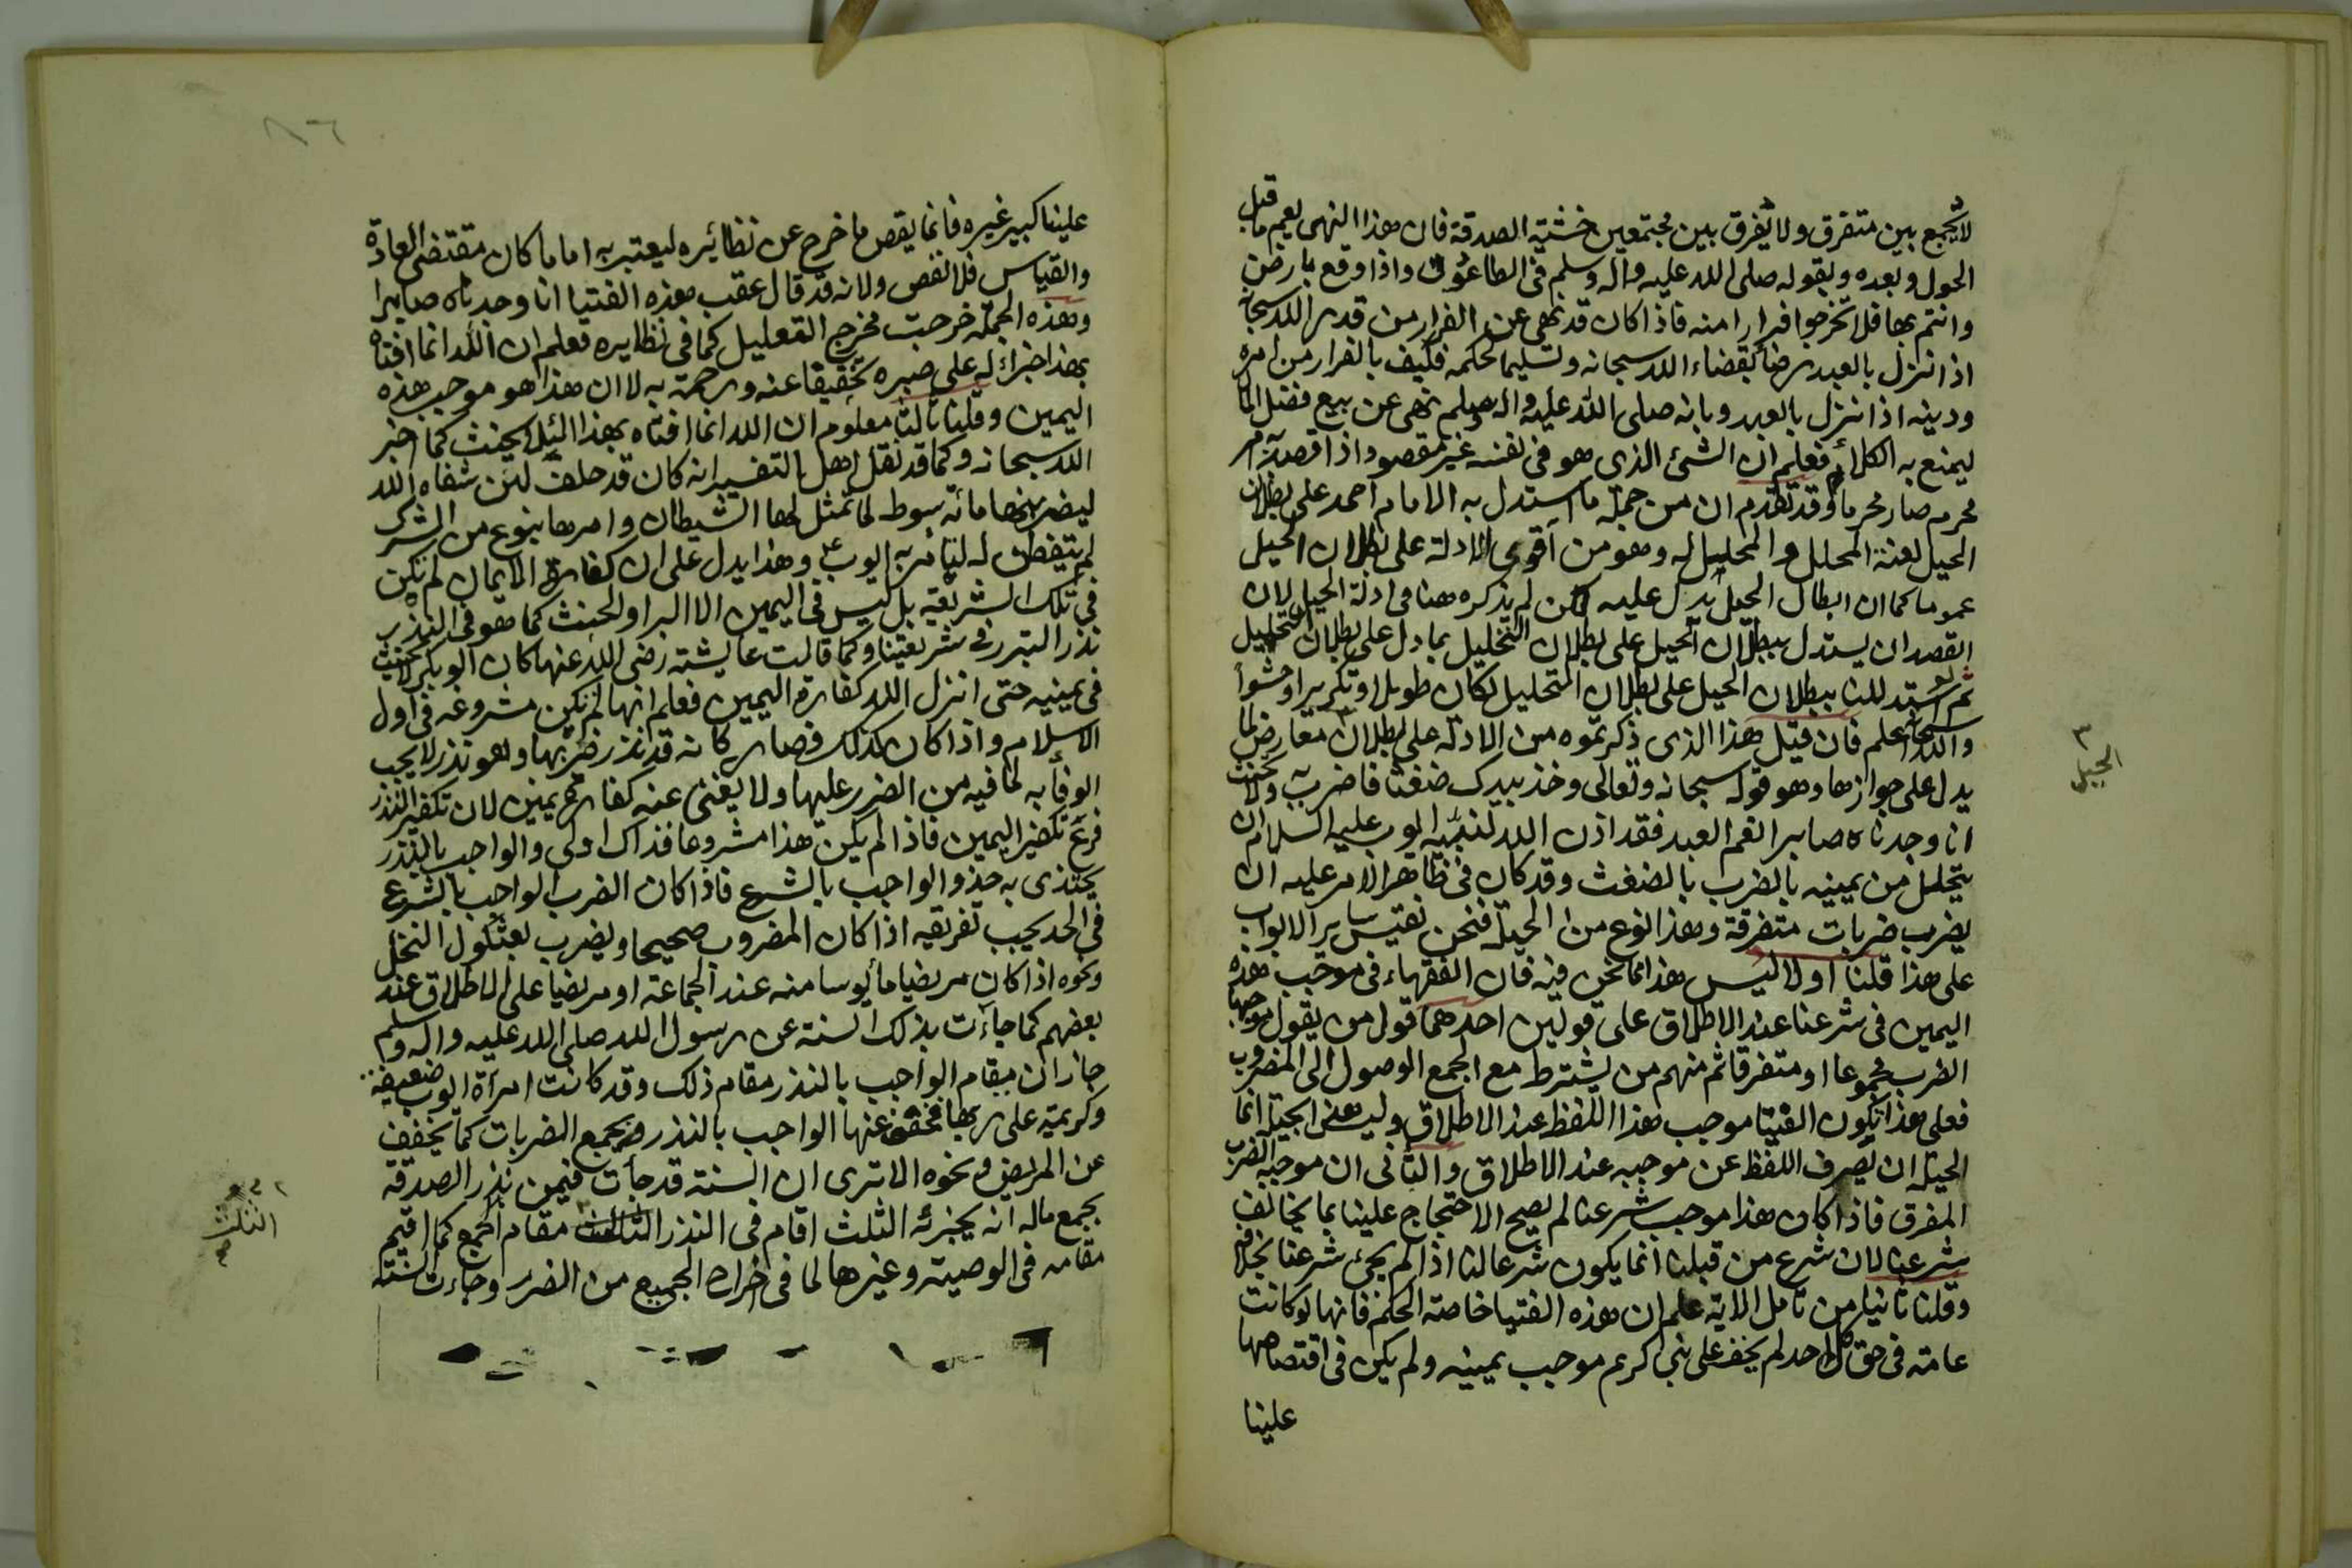 لا يجمع بين متفرق ولا يفرق بين مجتمعين خشية الصدقة فان هذا النهى يعم ما قبل
الحول وبعده وبقوله صلى الله عليه وآله وسلم فى الطاعون واذا وقع بارض
وانتم بها فلا تخرجوا فرارا منه فاذا كان قد نهى عن الفرار من قدر الله سبحانه
اذا نزل بالعبد رضا بقضاء الله سبحانه وتسليما لحكمه فكيف بالفرار من امره
ودينه اذا نزل بالعبد وبانه صلى الله عليه وآله وسلم نهى عن بيع فضل الماء
ليمنع به الكلاء فعلم ان الشئ الذى هو فى نفسه غير مقصود اذا قصد به امر
محرم صار محرما وقد تقدم ان من جملة ما استدل به الامام احمد على بطلان
الحيل لعنة المحلل والمحلل له وهو من اقوى الادلة على بطلان الحيل
عموما كما ان ابطال الحيل يدل عليه لكن لم يذكره هنا فى ادلة الحيل لان
القصد ان يستدل ببطلان الحيل على بطلان التحليل بما دل على بطلان التحليل
ثم استدللنا ببطلان الحيل على بطلان التحليل لكان طويلا وتكريرا وحشوا
والله سبحانه اعلم فان قيل هذا الذى ذكرتموه من الادلة على بطلان معارض لما
يدل على جوازها وهو قوله سبحانه وتعالى وخذ بيدك ضغثا فاضرب به ولا تحنث
انا وجدناه صابرا نعم العبد فقد اذن الله لنبيه ايوب عليه السلام ان
يتحلل من يمينه بالضرب بالضغث وقد كان فى ظاهر الامر عليه ان
يضرب ضربات متفرقة وهذا نوع من الحيلة فنحن نقيس سائر الابواب
على هذا قلنا اولا ليس هذا مما نحن فيه فان الفقهاء فى موجب هذه
اليمين فى شرعنا عند الاطلاق على قولين احدهما قول من يقول موجبها
الضرب مجموعا او متفرقا ثم منهم من يشترط مع الجمع الوصول الى المضروب
فعلى هذا تكون الفتيا موجب هذا اللفظ عند الاطلاق وليس هذا بحيلة انما
الحيلة ان يصرف اللفظ عن موجبه عند الاطلاق والثانى ان موجبه الضرب
المفرق فاذا كان هذا موجب شرعنا لم يصح الاحتجاج علينا بما يخالف
شرعنا لان شرع من قبلنا انما يكون شرعا لنا اذا لم يجئ شرعنا بخلافه
وقلنا ثانيا من تامل الاية علم ان هذه الفتيا خاصة الحكم فانها لو كانت
عامة فى حق كل احد لم يخف على نبى كريم موجب يمينه ولم يكن فى اقتصاصها
علينا
٣
الحيل
٨٦
علينا كبير غيره فانما يقص ما خرج عن نظائره ليعتبر به اما ما كان مقتضى العادة
والقياس فلا نقص ولانه قد قال عقب هذه الفتيا انا وجدناه صابرا
وهذه الجملة خرجت مخرج التعليل كما فى نظايره فعلم ان الله انما افتاه
بهذا جزاء له على صبره تخفيفا عنه ورحمة به لا ان هذا هو موجب هذه
اليمين وقلنا ثالثا معلوم ان الله انما افتاه بهذا لئلا يحنث كما اخبر
الله سبحانه وكما قد نقل اهل التفسير انه كان قد حلف لئن شفاه الله
ليضربنها مائة سوط لما تمثل لها الشيطان وامرها بنوع من الشرك
لم يتفطن له لتأمر به ايوب وهذا يدل على ان كفارة الايمان لم تكن
فى تلك الشريعة بل ليس فى اليمين الا البر او الحنث كما هو فى النذر
نذر التبرر فى شريعتنا وكما قالت عايشة رضى الله عنها كان ابو بكر لا يحنث
فى يمينه حتى انزل الله كفارة اليمين فعلم انها لم تكن مشروعة فى اول
الاسلام واذا كان كذلك فصار كانه قد نذر ضربها وهو نذر لا يجب
الوفاء به لما فيه من الضرر عليها ولا يغنى عنه كفارة يمين لان تكفير النذر
فرع تكفير اليمين فاذا لم يكن هذا مشروعا فذاك اولى والواجب بالنذر
يحتذى به حذو الواجب بالشرع فاذا كان الضرب الواجب بالشرع
فى الحد يجب تفريقه اذا كان المضروب صحيحا ويضرب بعثكول النخل
ونحوه اذا كان مريضا مأيوسا منه عند الجماعة او مريضا على الاطلاق عند
بعضهم كما جاءت بذلك السنة عن رسول الله صلى الله عليه واله وسلم
جاز ان يقام الواجب بالنذر مقام ذلك وقد كانت امرأة ايوب ضعيفة
وكريمة على ربها فخفف عنها الواجب بالنذر بجمع الضربات كما يخفف
عن المريض ونحوه الا ترى ان السنة قد جأت فيمن نذر الصدقة
بجمع ماله انه يجزئه الثلث اقام فى النذر الثلث مقام الجمع كما اقيم
مقامه فى الوصية وغيرها لما فى اخراج الجميع من الضرر وجاءت السنة
الثلث